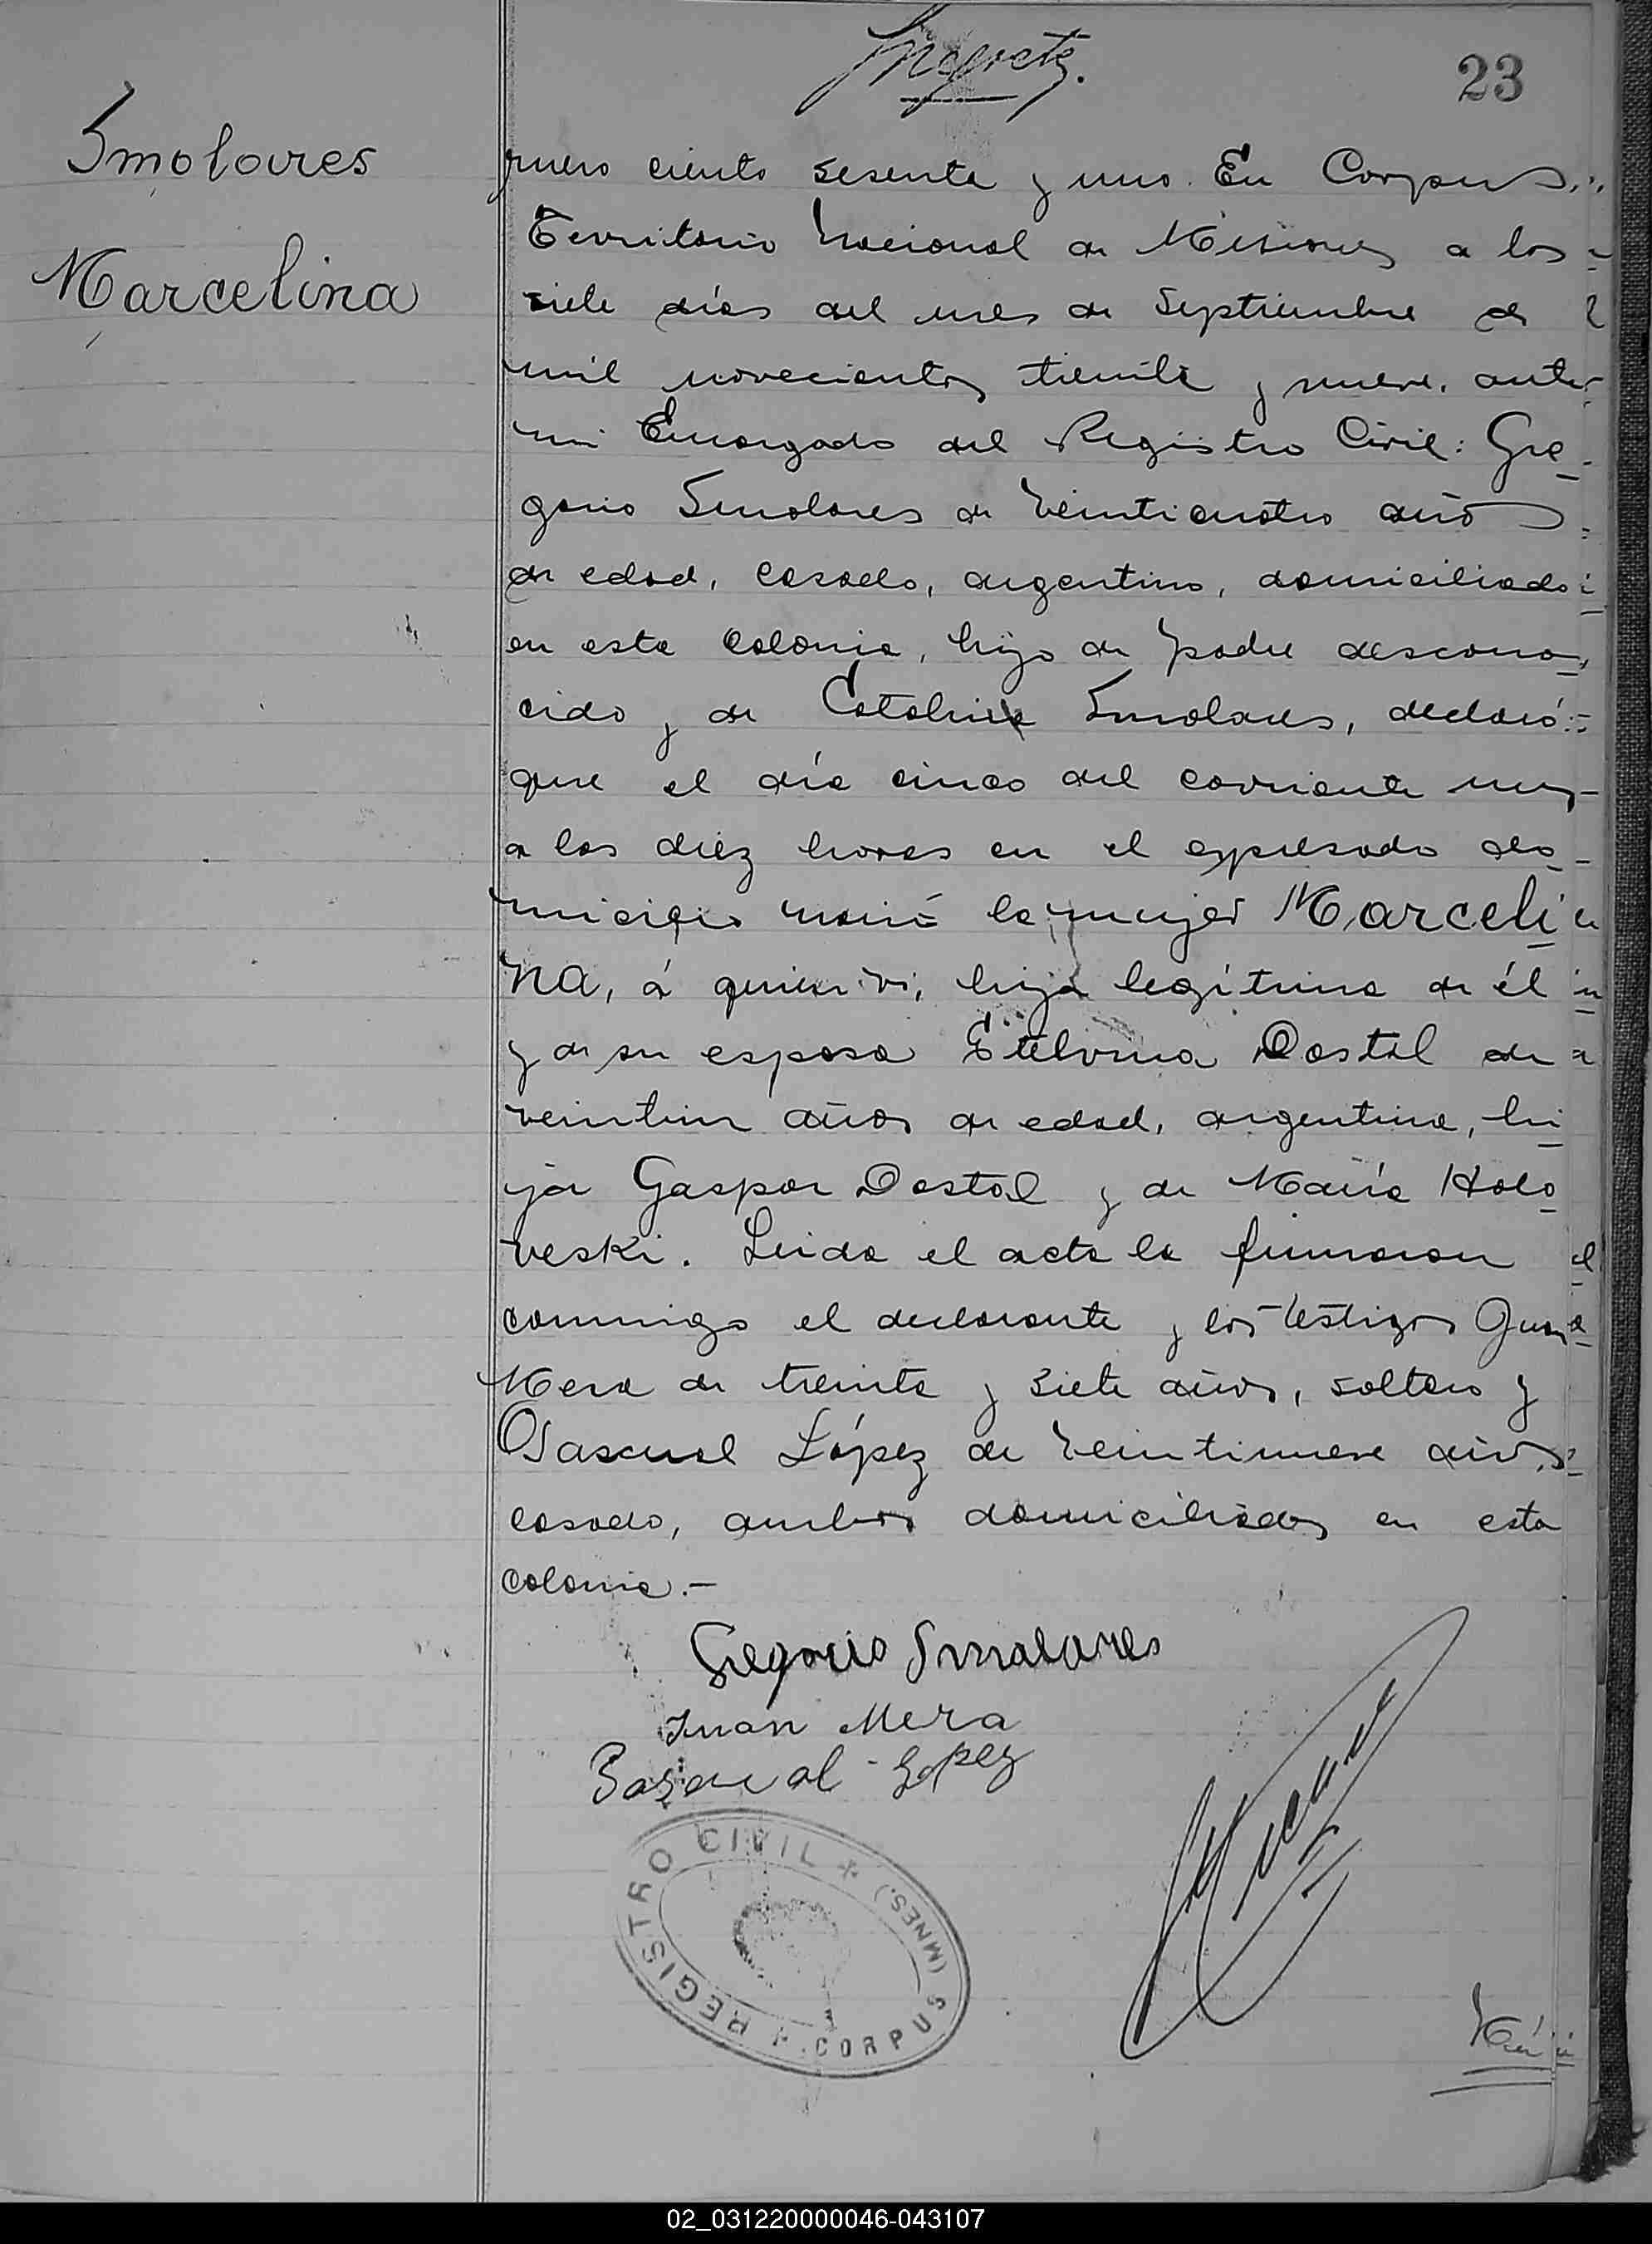 23
Smolares
Marcelina
mero ciento sesenta y uno. En Corpus,
Territorio Nacional de Misiones a los
siete días del mes de Septiembre de
mil novecientos treinta y nueve, ante
mi Encargado del Registro Civil: Gre-
gorio Smolares de veinticuatro años
de edad, casado, argentino, domiciliado
en esta Colonia, hijo de padre descono-
cido y de Catalina Smolares, declaró:
que el día cinco del corriente mes
a las diez horas en el expresado do-
micilio nació la mujer Marceli
na, á quien vi, hija legítima de él
y de su esposa Etelvina Dostal de
veintiun años de edad, argentina, hi
ja Gaspar Dostal y de María Holo
veski. Leida el acta la firmaron
conmigo el declarante y los testigos Juan
Mera de treinta y siete años, soltero y
Pascual López de veintinueve años
casado, ambos domiciliados en esta
colonia.-
Gregorio Smolares
Juan Mera
Pascual Lopez
REGISTRO CIVIL
CORPUS (MNES.)
02_031220000046-043107